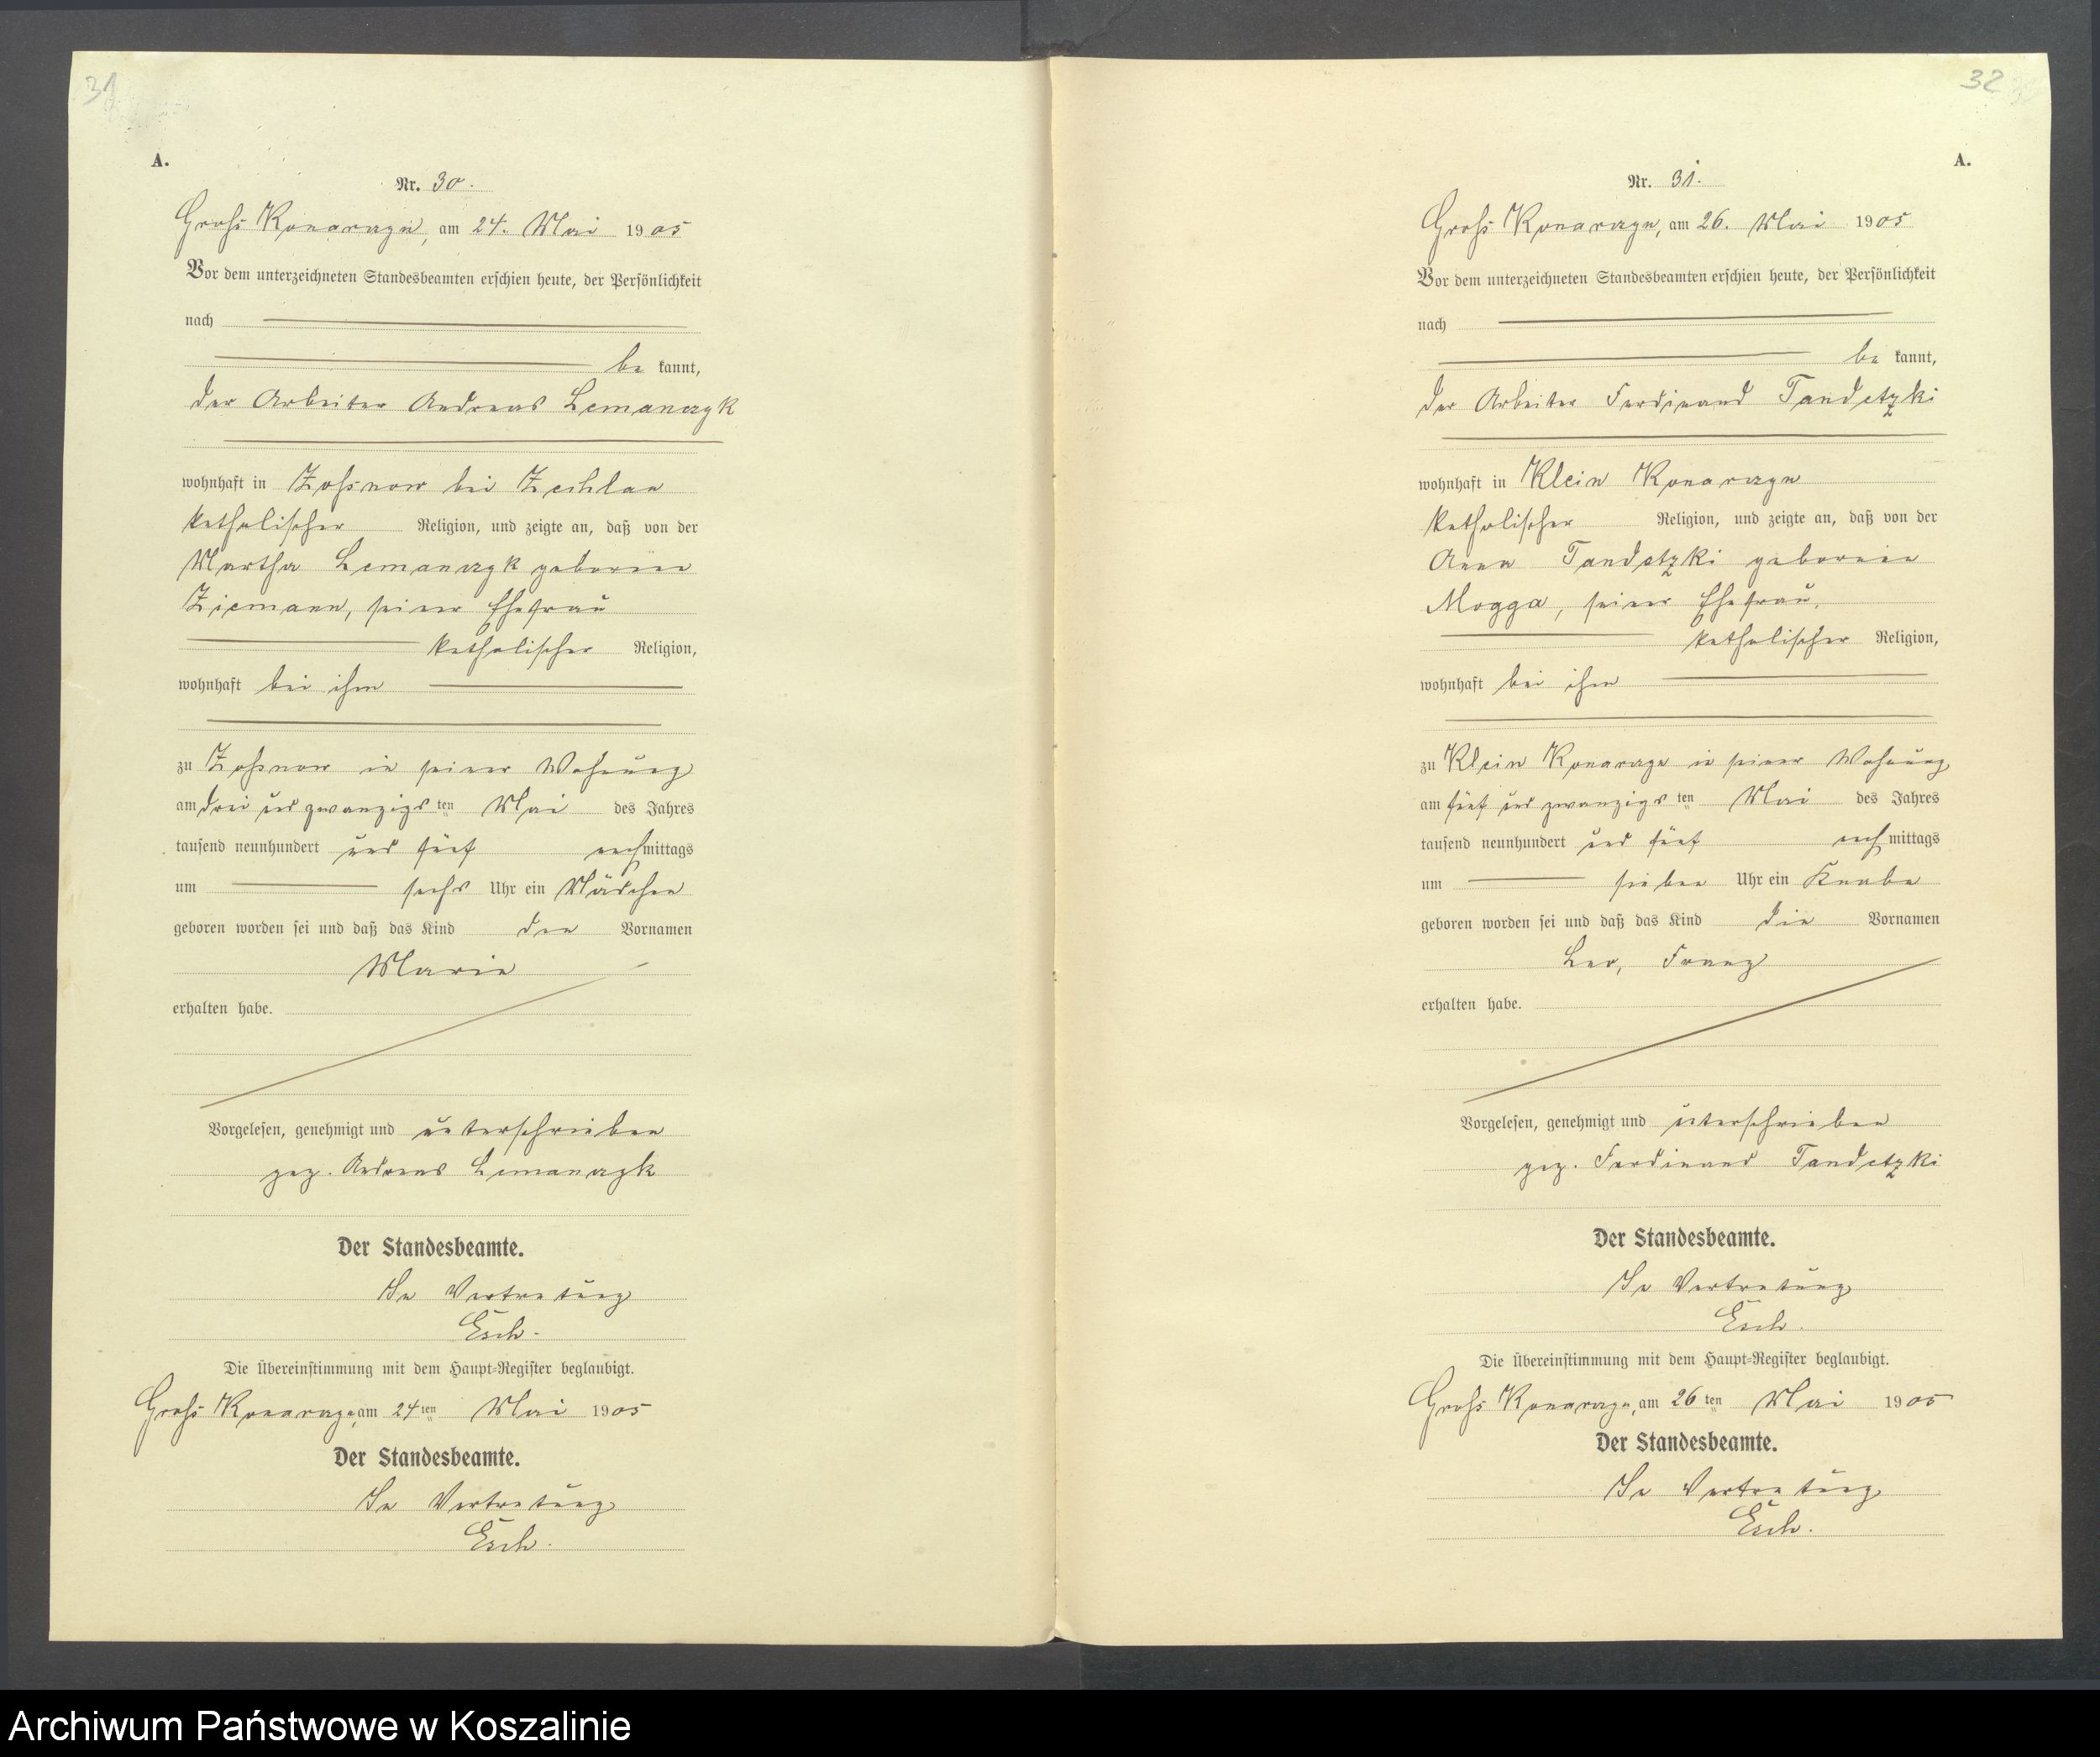 31
A.
Nr. 30.
Groß Konarczyn, am 24. Mai 1905
Vor dem unterzeichneten Standesbeamten erschien heute, der Persönlichkeit
nach
be kannt,
der Arbeiter Andreas Lemanczyk
wohnhaft in Zoßnow bei Zechlau
katholischer Religion, und zeigte an, daß von der
Martha Lemanczyk geborene
Ziemann, seiner Ehefrau
katholischer Religion,
wohnhaft bei ihm
zu Zoßnow in seiner Wohnung
am drei und zwanzigsten Mai des Jahres
tausend neunhundert und fünf nachmittags
um sechs Uhr ein Mädchen
geboren worden sei und daß das Kind den Vornamen
Marie
erhalten habe.
Vorgelesen, genehmigt und unterschrieben
gez. Andreas Lemanczyk
Der Standesbeamte.
In Vertretung
Esch.
Die Übereinstimmung mit dem Haupt-Register beglaubigt.
Groß Konarczyn, am 24ten Mai 1905
Der Standesbeamte.
In Vertretung
Esch.
32
A.
Nr. 31.
Groß Konarczyn, am 26. Mai 1905
Vor dem unterzeichneten Standesbeamten erschien heute, der Persönlichkeit
nach
be kannt,
der Arbeiter Ferdinand Tandetzki
wohnhaft in Klein Konarczyn
katholischer Religion, und zeigte an, daß von der
Anna Tandetzki geborene
Mogga, seiner Ehefrau,
katholischer Religion,
wohnhaft bei ihm
zu Klein Konarczyn in seiner Wohnung
am fünf und zwanzigsten Mai des Jahres
tausend neunhundert und fünf nachmittags
um sieben Uhr ein Knabe
geboren worden sei und daß das Kind die Vornamen
Leo, Franz
erhalten habe.
Vorgelesen, genehmigt und unterschrieben
gez. Ferdinand Tandetzki
Der Standesbeamte.
In Vertretung
Esch.
Die Übereinstimmung mit dem Haupt-Register beglaubigt.
Groß Konarczyn, am 26ten Mai 1905
Der Standesbeamte.
In Vertretung
Esch.
Archiwum Państwowe w Koszalinie